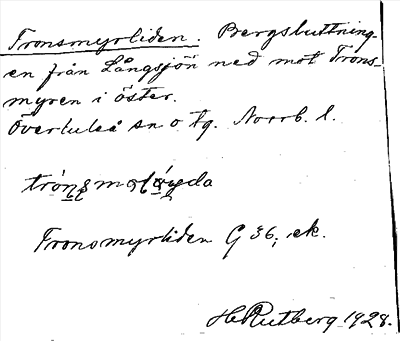 Tronsmyrliden. Bergsluttning-
en från Långsjön ned mot Trons-
myren i öster.
Överluleå sn o tg. Norrb. l.
Tronsmyrliden G 36, ek.
H Rutberg 1928.